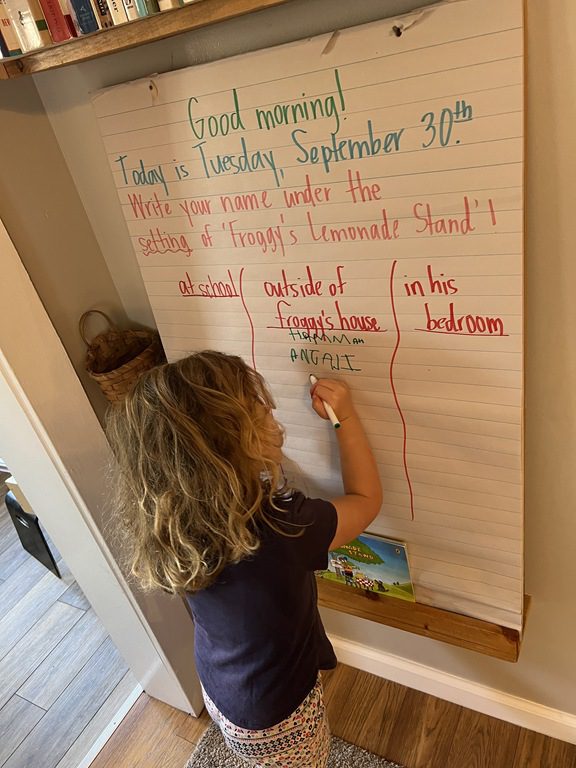 Good morning!
Today is Tuesday, September 30th.
Write your name under the
setting of 'Froggy's Lemonade Stand'!
at school
outside of
froggy's house
in his
bedroom
HANNAH
ANJALI
STAND